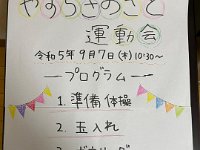 やすらぎのさと
運動会
令和5年9月7日(木)10:30〜
―プログラム―
1. 準備体操
2. 玉入れ